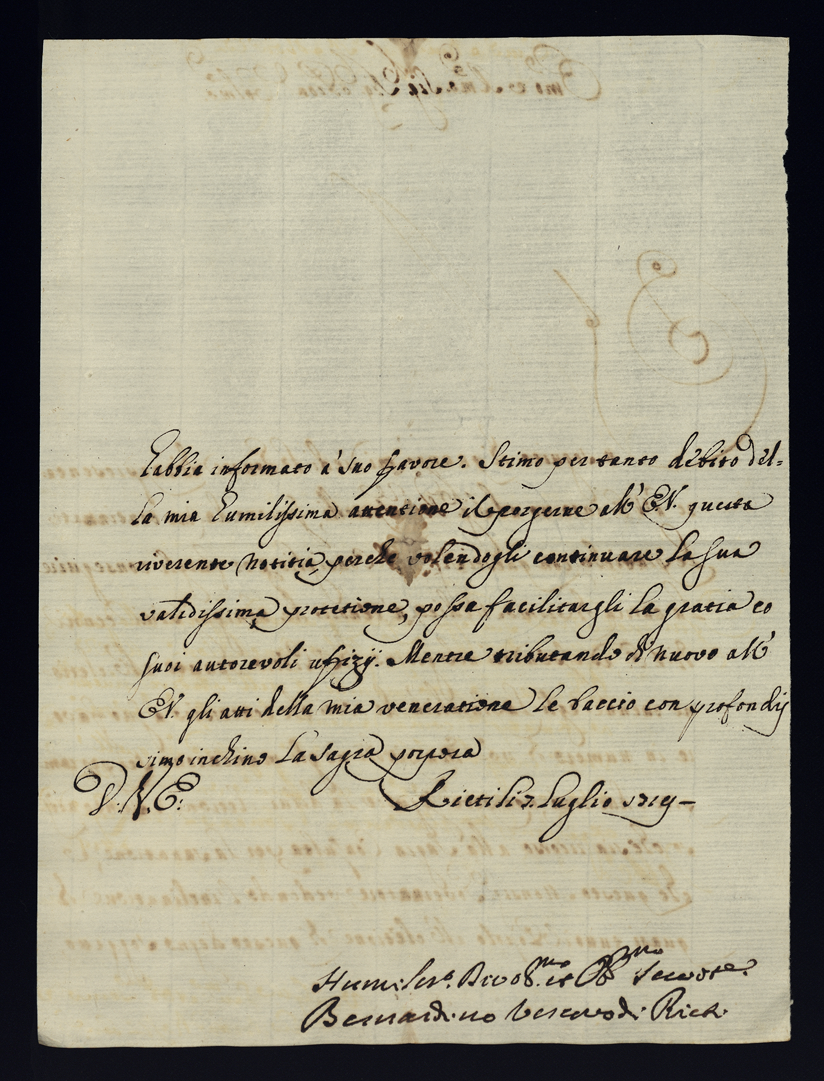 habbia informato à suo favore. Stimo per tanto debito del=
la mia humilissima attentione il porgerne all' E.V. questa
riverente notitia, perche volendogli continuare la sua
validissima protetione, possa facilitargli la gratia co
suoi autorevoli uffizij. Mentre tributando di nuovo all'
E.V. gli atti della mia veneratione le baccio con profondis
simo inchino la sagra porpora
D. V. E. Rieti li 7. Luglio 1719 -
Humiliss.o Divot.mo et Obb.mo Servore.
Bernardino Vescovo di Rieti